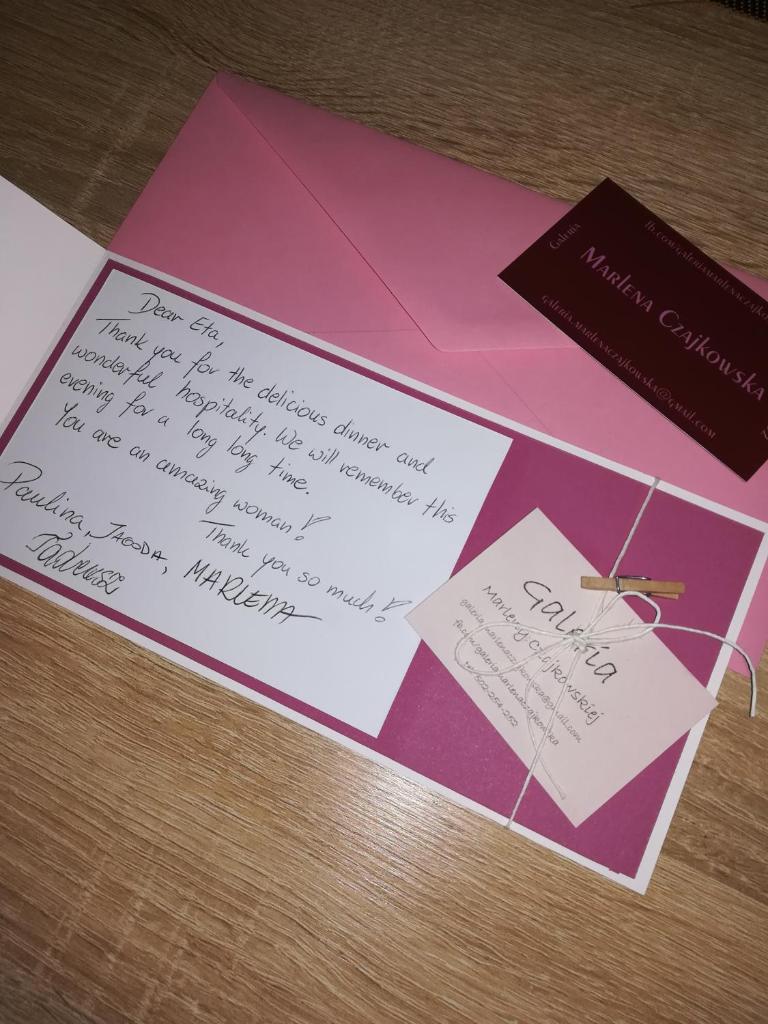 Dear Eta,
Thank you for the delicious dinner and
wonderful hospitality. We will remember this
evening for a long long time.
You are an amazing woman!
Thank you so much!
Paulina, JAGODA, MARLENA
Tadeusz
Galeria
fb.com/galeriamarlenaczajko
Marlena Czajkowska
galeria.marlenaczajkowska@gmail.com
Galeria
Marleny Czajkowskiej
galeria.marlenaczajkowska@gmail.com
fb.com/galeriamarlenaczajkowska